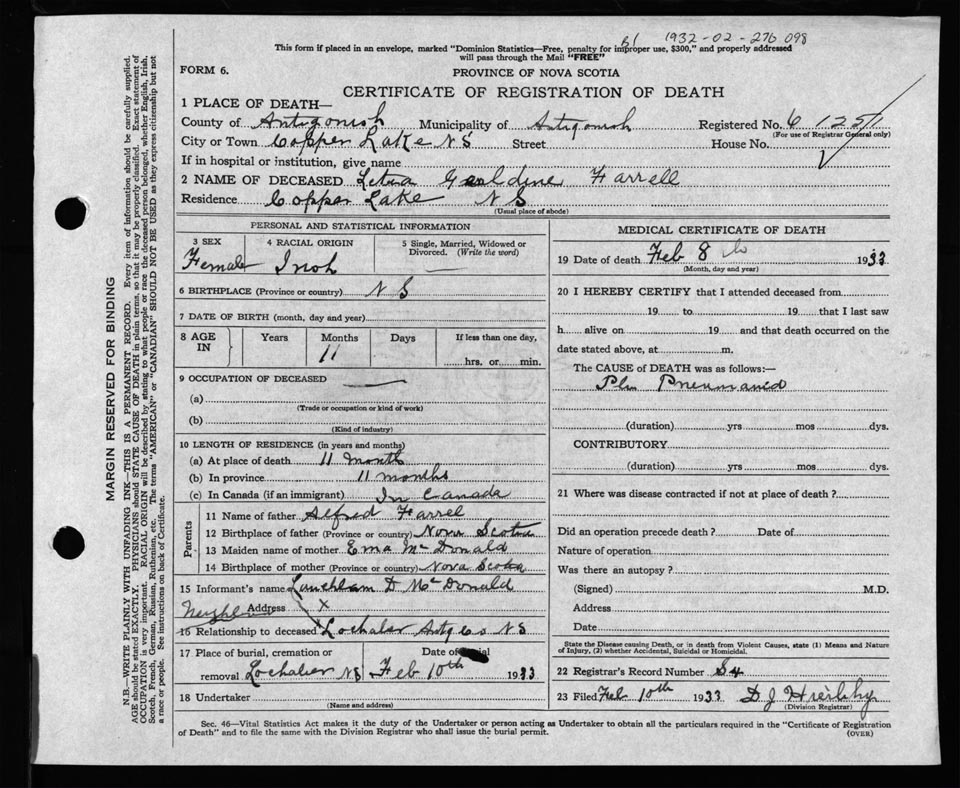 1932-02-276 098
This form if placed in an envelope, marked "Dominion Statistics—Free, penalty for improper use, $300," and properly addressed
will pass through the Mail "FREE"
FORM 6.
PROVINCE OF NOVA SCOTIA
CERTIFICATE OF REGISTRATION OF DEATH
1 PLACE OF DEATH—
County of Antigonish Municipality of Antigonish Registered No. 6 1251
(For use of Registrar General only)
City or Town Copper Lake N S Street House No.
If in hospital or institution, give name
2 NAME OF DECEASED Letna Geraldine Farrell
Residence Copper Lake N S
(Usual place of abode)
PERSONAL AND STATISTICAL INFORMATION
3 SEX 4 RACIAL ORIGIN 5 Single, Married, Widowed or Divorced. (Write the word)
Female Irish —
6 BIRTHPLACE (Province or country) N S
7 DATE OF BIRTH (month, day and year)
8 AGE IN Years Months Days If less than one day,
11 hrs. or min.
9 OCCUPATION OF DECEASED —
(a)
(Trade or occupation or kind of work)
(b)
(Kind of industry)
10 LENGTH OF RESIDENCE (in years and months)
(a) At place of death 11 month
(b) In province 11 months
(c) In Canada (if an immigrant) In Canada
Parents
11 Name of father Alfred Farrel
12 Birthplace of father (Province or country) Nova Scotia
13 Maiden name of mother Ema McDonald
14 Birthplace of mother (Province or country) Nova Scotia
15 Informant's name Lauchlam D McDonald
Neighbor Address X
16 Relationship to deceased Lochaber Antg Co N S
17 Place of burial, cremation or removal Lochaber N S Date of burial Feb 10th 1933
18 Undertaker
(Name and address)
MEDICAL CERTIFICATE OF DEATH
19 Date of death Feb 8 1933
(Month, day and year)
20 I HEREBY CERTIFY that I attended deceased from
19 to 19 that I last saw
h alive on 19 and that death occurred on the
date stated above, at m.
The CAUSE of DEATH was as follows:—
Pneumanid
(duration) yrs mos dys.
CONTRIBUTORY
(duration) yrs mos dys.
21 Where was disease contracted if not at place of death?
Did an operation precede death? Date of
Nature of operation
Was there an autopsy?
(Signed) M.D.
Address
Date
State the Disease causing Death, or in death from Violent Causes, state (1) Means and Nature
of Injury, (2) whether Accidental, Suicidal or Homicidal.
22 Registrar's Record Number 84
23 Filed Feb 10th 1933 D J
(Division Registrar)
Sec. 46—Vital Statistics Act makes it the duty of the Undertaker or person acting as Undertaker to obtain all the particulars required in the "Certificate of Registration
of Death" and to file the same with the Division Registrar who shall issue the burial permit.
(OVER)
MARGIN RESERVED FOR BINDING
N.B.—WRITE PLAINLY WITH UNFADING INK—THIS IS A PERMANENT RECORD. Every item of information should be carefully supplied.
AGE should be stated EXACTLY. PHYSICIANS should STATE CAUSE OF DEATH in plain terms, so that it may be properly classified. Exact statement of
OCCUPATION is very important. RACIAL ORIGIN will be described by stating to what people or race the deceased person belonged, whether English, Irish,
Scotch, French, German, Russian, Ruthenian, etc. The terms "AMERICAN" or "CANADIAN" SHOULD NOT BE USED as they express citizenship but not
a race or people. See instructions on back of Certificate.